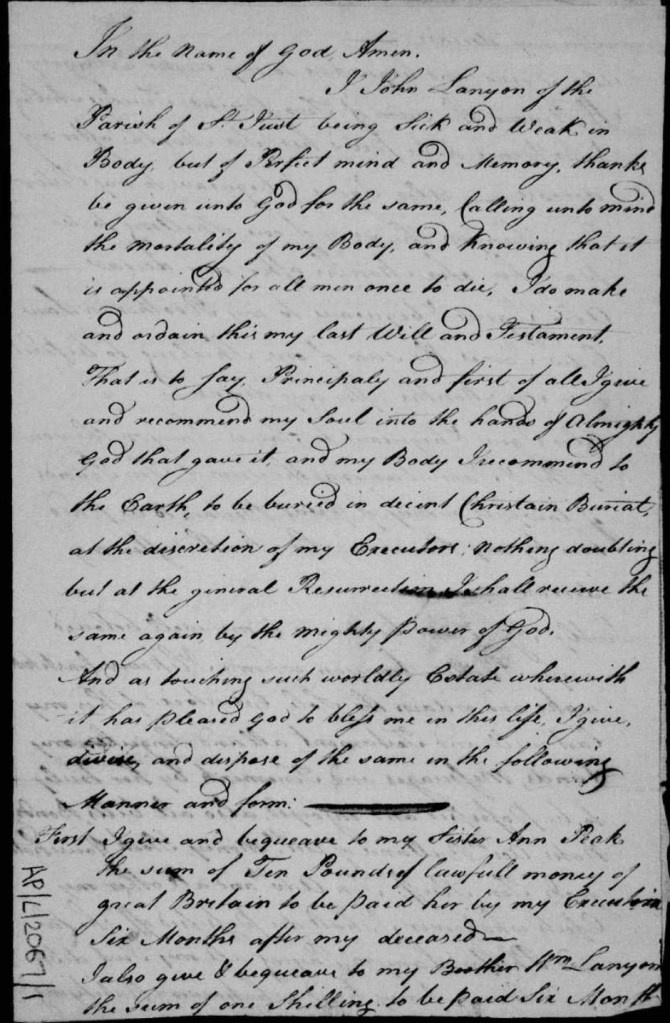 In the Name of God Amen.
I John Lanyon of the
Parish of St. Just being Sick and Weak in
Body, but of Perfect mind and Memory, thanks
be given unto God for the same, Calling unto mind
the mortality of my Body, and Knowing that it
is appointed for all men once to die, I do make
and ordain this my last Will and Testament,
That is to say, Principaly and first of all I give
and recommend my Soul into the hands of Almighty
God that gave it, and my Body I recommend to
the Earth, to be buried in decent Christain Burial,
at the discretion of my Executors; nothing doubting
but at the general Resurrection I shall receive the
same again, by the mighty Power of God.
And as touching such worldly Estate wherewith
it has pleased God to bless me in this life, I give,
divise, and dispose of the same in the following
Manner and form:
First I give and bequeave to my Sister Ann Peak
the sum of Ten Pounds of lawfull money of
great Britain to be paid her by my
Six Months after my deceased
I also give & bequeave to my Brother Wm Lanyon
the sum of one Shilling to be paid Six Month
AP/L/2067/1